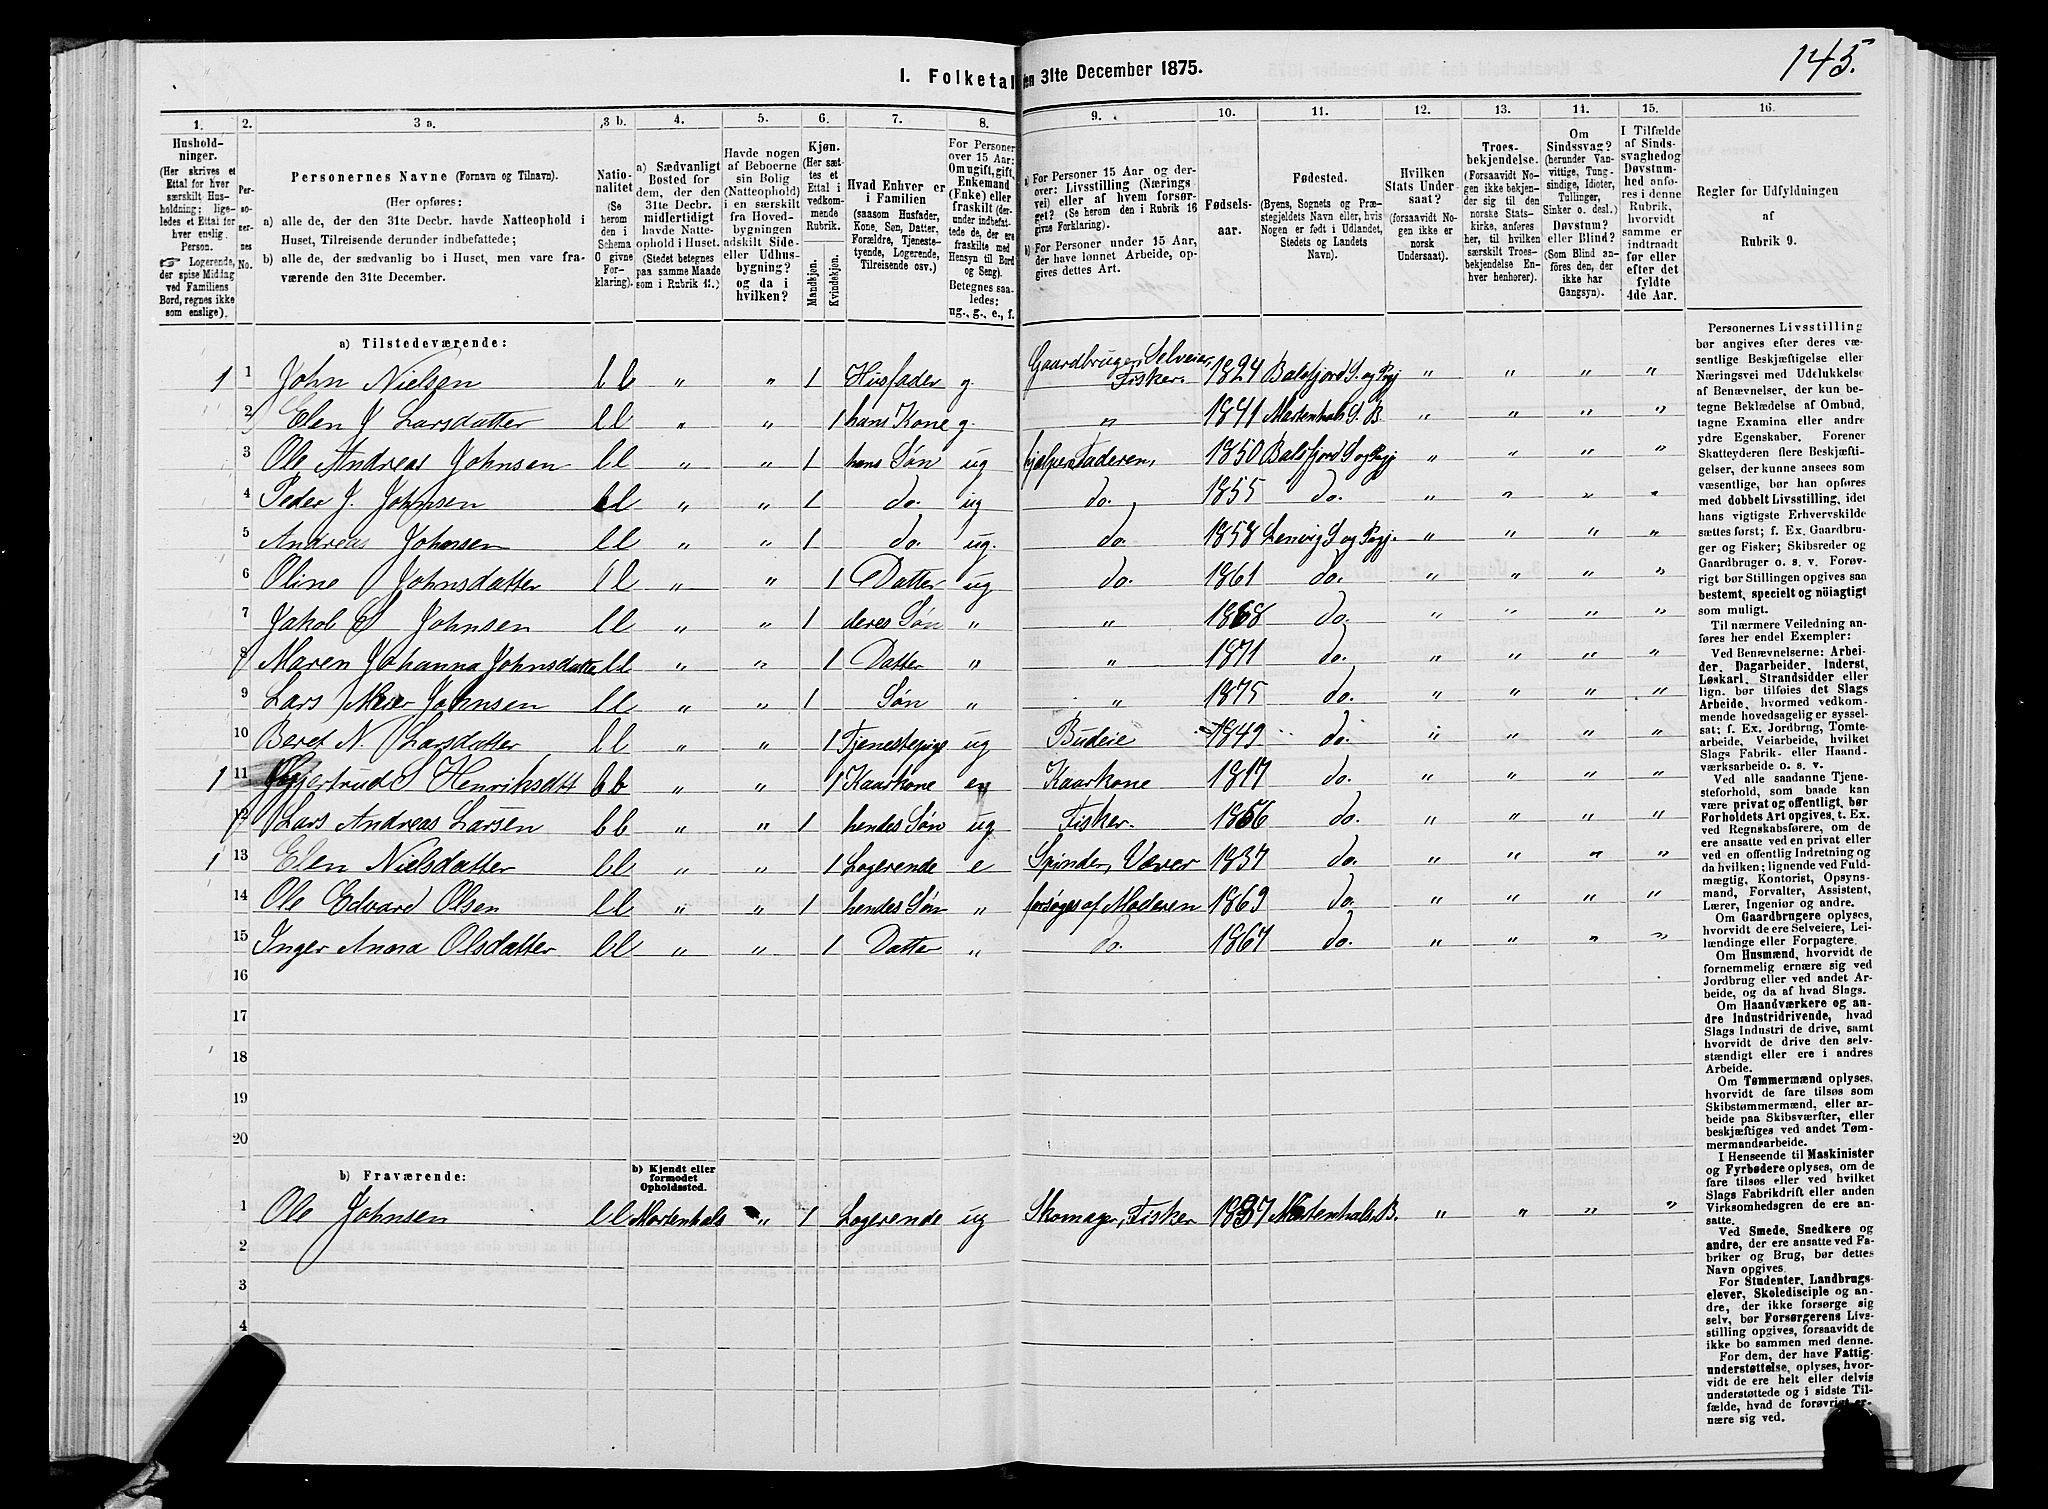 145.
I. Folketal den 31te December 1875.
1. 2. 3 a. 3 b. 4. 5. 6. 7. 8. 9. 10. 11. 12. 13. 14. 15. 16.
Hushold-
ninger.
(Her skrives et
Ettal for hver
særskilt Hus-
holdning; lige-
ledes et Ettal for
hver enslig
Person.
☞ Logerende,
der spise Middag
ved Familiens
Bord, regnes ikke
som enslige).
Per-
so-
ner-
nes
No.
Personernes Navne (Fornavn og Tilnavn).
(Her opføres:
a) alle de, der den 31te Decbr. havde Natteophold i
Huset, Tilreisende derunder indbefattede;
b) alle de, der sædvanlig bo i Huset, men vare fra-
værende den 31te December.
Natio-
nalitet
(Se
herom
den i
Schema
O givne
For-
klaring).
a) Sædvanligt
Bosted for
dem, der den
31te Decbr.
midlertidigt
havde Natte-
ophold i Huset.
(Stedet betegnes
paa samme Maade
som i Rubrik 11.)
Havde nogen
af Beboerne
sin Bolig
(Natteophold)
i en særskilt
fra Hoved-
bygningen
adskilt Side-
eller Udhus-
bygning?
og da i
hvilken?
Kjøn.
(Her sæt-
tes et
Ettal i
vedkom-
mende
Rubrik.
Mandkjøn.
Kvindekjøn.
Hvad Enhver er
i Familien
(saasom Husfader,
Kone, Søn, Datter,
Forældre, Tjeneste-
tyende, Logerende,
Tilreisende osv.)
For Personer
over 15 Aar:
Om ugift, gift,
Enkemand
(Enke) eller
fraskilt (der-
under indbefat-
tede de, der ere
fraskilte med
Hensyn til Bord
og Seng).
Betegnes saa-
ledes:
ug., g., e., f.
a) For Personer 15 Aar og der-
over: Livsstilling (Nærings-
vei) eller af hvem forsør-
get? (Se herom den i Rubrik 16
givne Forklaring).
b) For Personer under 15 Aar,
der have lønnet Arbeide, op-
gives dettes Art.
Fødsels-
aar.
Fødested.
(Byens, Sognets og Præ-
stegjeldets Navn eller, hvis
Nogen er født i Udlandet,
Stedets og Landets
Navn).
Hvilken
Stats Under-
saat?
(forsaavidt No-
gen ikke er
norsk
Undersaat).
Troes-
bekjendelse.
(Forsaavidt No-
gen ikke bekjen-
der sig til den
norske Stats-
kirke, anføres
her, til hvilken
særskilt Troes-
bekjendelse En-
hver henhører).
Om
Sindssvag?
(herunder Van-
vittige, Tung-
sindige, Idioter,
Tullinger,
Sinker o. desl.)
Døvstum?
eller Blind?
(Som Blind an-
føres den, der
ikke har
Gangsyn).
I Tilfælde
af Sinds-
svaghed og
Døvstum-
hed anfø-
res i denne
Rubrik,
hvorvidt
samme er
indtraadt
før eller
efter det
fyldte
4de Aar.
Regler for Udfyldningen
af
Rubrik 9.
a) Tilstedeværende:
1 1 John Nielsen bb „ „ 1 Husfader g. Gaardbruger, Selveier, Fisker. 1824 Balsfjord S. og Pgj „ „ „ „
2 Elen J Larsdatter bl „ „ 1 hans Kone g. „ 1841 Mestenhals S. B. „ „ „ „
3 Ole Andreas Johnsen bl „ „ 1 hans Søn ug hjelper Faderen, 1850 Balsfjord S og Pgj „ „ „ „
4 Peder J. Johnsen bl „ „ 1 do. ug do. 1855 do. „ „ „ „
5 Andreas Johnsen bl „ „ 1 do. ug. do. 1858 Lenvig S og Pgj. „ „ „ „
6 Oline Johnsdatter bl „ „ 1 Datter ug do. 1861 do. „ „ „ „
7 Jakob Johnsen bl „ „ 1 deres Søn „ „ 1868 do. „ „ „ „
8 Maren Johanna Johnsdatter bl „ „ 1 Datter „ „ 1871 do. „ „ „ „
9 Lars Meier Johnsen bl „ „ 1 Søn „ „ 1875 do. „ „ „ „
10 Beret N. Larsdatter bl „ „ 1 Tjenestepige ug Budeie 1849 do. „ „ „ „
1 11 Gjertrud S Henriksdtt bb „ „ 1 Kaarkone e Kaarkone 1817 do. „ „ „ „
12 Lars Andreas Larsen bb „ „ 1 hendes Søn ug Fisker. 1856 do. „ „ „ „
1 13 Elen Nielsdatter bl „ „ 1 Logerende e Spinder, Væver 1837 do. „ „ „ „
14 Ole Edvard Olsen bl „ „ 1 hendes Søn „ forsørges af Moderen 1863 do. „ „ „ „
15 Inger Anna Olsdatter bl „ „ 1 Datter „ Do. 1867 do. „ „ „ „
16
17
18
19
20
b) Fraværende:
b) Kjendt eller
formodet
Opholdssted.
1 Ole Johnsen bl Mortenhals „ 1 Logerende ug Skomager, Fisker 1837 Mestenhals. B. „ „ „ „
2
3
4
Personernes Livsstilling
bør angives efter deres væ-
sentlige Beskjæftigelse eller
Næringsvei med Udelukkelse
af Benævnelser, der kun be-
tegne Beklædelse af Ombud,
tagne Examina eller andre
ydre Egenskaber. Forener
Skatteyderen flere Beskjæfti-
gelser, der kunne ansees som
væsentlige, bør han opføres
med dobbelt Livsstilling, idet
hans vigtigste Erhvervskilde
sættes først; f. Ex. Gaardbru-
ger og Fisker; Skibsreder og
Gaardbruger o. s. v. Forøv-
rigt bør Stillingen opgives saa
bestemt, specielt og nøiagtigt
som muligt.
Til nærmere Veiledning an-
føres her endel Exempler:
Ved Benævnelserne: Arbei-
der, Dagarbeider, Inderst,
Løskarl, Strandsidder eller
lign. bør tilføies det Slags
Arbeide, hvormed vedkom-
mende hovedsagelig er syssel-
sat; f. Ex. Jordbrug, Tomte-
arbeide, Veiarbeide, hvilket
Slags Fabrik- eller Haand-
værksarbeide o. s. v.
Ved alle saadanne Tjene-
steforhold, som baade kan
være privat og offentligt, bør
Forholdets Art opgives, t. Ex.
ved Regnskabsførere, om de
ere ansatte ved en privat eller
ved en offentlig Indretning og
da hvilken; lignende ved Fuld-
mægtig, Kontorist, Opsyns-
mand, Forvalter, Assistent,
Lærer, Ingeniør og andre.
Om Gaardbrugere oplyses,
hvorvidt de ere Selveiere, Lei-
lændinge eller Forpagtere.
Om Husmænd, hvorvidt de
fornemmelig ernære sig ved
Jordbrug eller ved andet Ar-
beide, og da af hvad Slags.
Om Haandværkere og an-
dre Industridrivende, hvad
Slags Industri de drive, samt
hvorvidt de drive den selv-
stændigt eller ere i andres
Arbeide.
Om Tømmermænd oplyses,
hvorvidt de fare tilsøs som
Skibstømmermænd, eller ar-
beide paa Skibsværfter, eller
beskjæftiges ved andet Tøm-
mermandsarbeide.
I Henseende til Maskinister
og Fyrbødere oplyses, om de
fare tilsøs eller ved hvilket
Slags Fabrikdrift eller anden
Virksomhedsgren de ere an-
satte.
Ved Smede, Snedkere og
andre, der ere ansatte ved Fa-
briker og Brug, bør dettes
Navn opgives.
For Studenter, Landbrugs-
elever, Skoledisciple og an-
dre, der ikke forsørge sig
selv, bør Forsørgerens Livs-
stilling opgives, forsaavidt de
ikke bo sammen med denne.
For dem, der have Fattig-
understøttelse, oplyses, hvor-
vidt de ere helt eller delvis
understøttede og i sidste Til-
fælde, hvad de forøvrigt er-
nære sig ved.